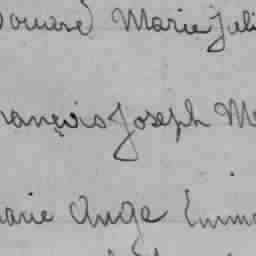 Edouard Marie Juli
François Joseph Me
Marie Ange Emma